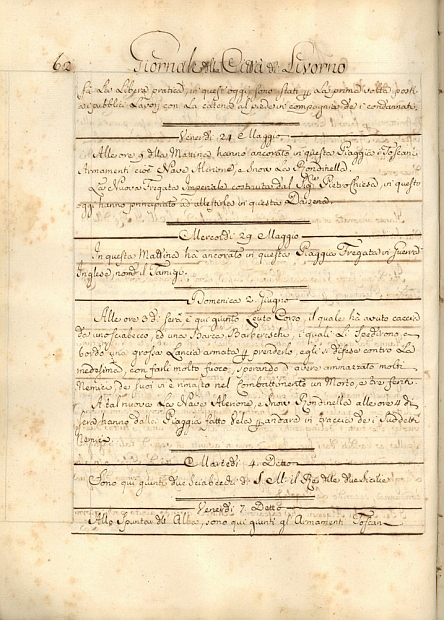 62 Giornale della Città di Livorno
Fà La Libera pratica, in quest'oggi sono stati p La prima volta posti
a i pubblici Lavori con La catena al piede in compagnia de i condannati.
Venerdì 24 Maggio
Alle ore 9 della Mattina hanno ancorato in questa Piaggia i Toscani
Armamenti cioè Nave Alcione, e Snow La Rondinella.
La Nuova Fregata Imperiale costruita dal Sig.re Pietro Chiesa, in quest'
oggi hanno principiato ad allestirla in questa Darzena.
Mercoldì 29 Maggio
In questa Mattina hà ancorato in questa Piaggia Fregata in Guerra
Inglese, nom.ta il Tamigi.
Domenica 2 Giugno
Alle ore 3 di sera è qui giunto Leuto Corso, il quale hà avuto caccia
da uno sciabecco, ed una Barca Barbaresca, i quali Li spedirono a
bordo una grossa Lancia armata p prenderlo, egli si difese contro La
medesima, con farli molto fuoco, sperando d'avere ammazzato molti
Nemici, de suoi vi è restato nel Combattimento un Morto, e tre feriti.
A tal nuova La Nave Alcione, e Snow Rondinella alle ore 4 di
sera hanno dalla Piaggia fatto Vela p andare in traccia de i suddetti
Nemici.
Martedì 4. Detto
Sono qui giunti due Sciabecchi di S. M. il Rè delle due Sicilie
Venerdì 7 Detto
Allo Spuntar dell'Alba, sono qui giunti gl'Armamenti Toscan